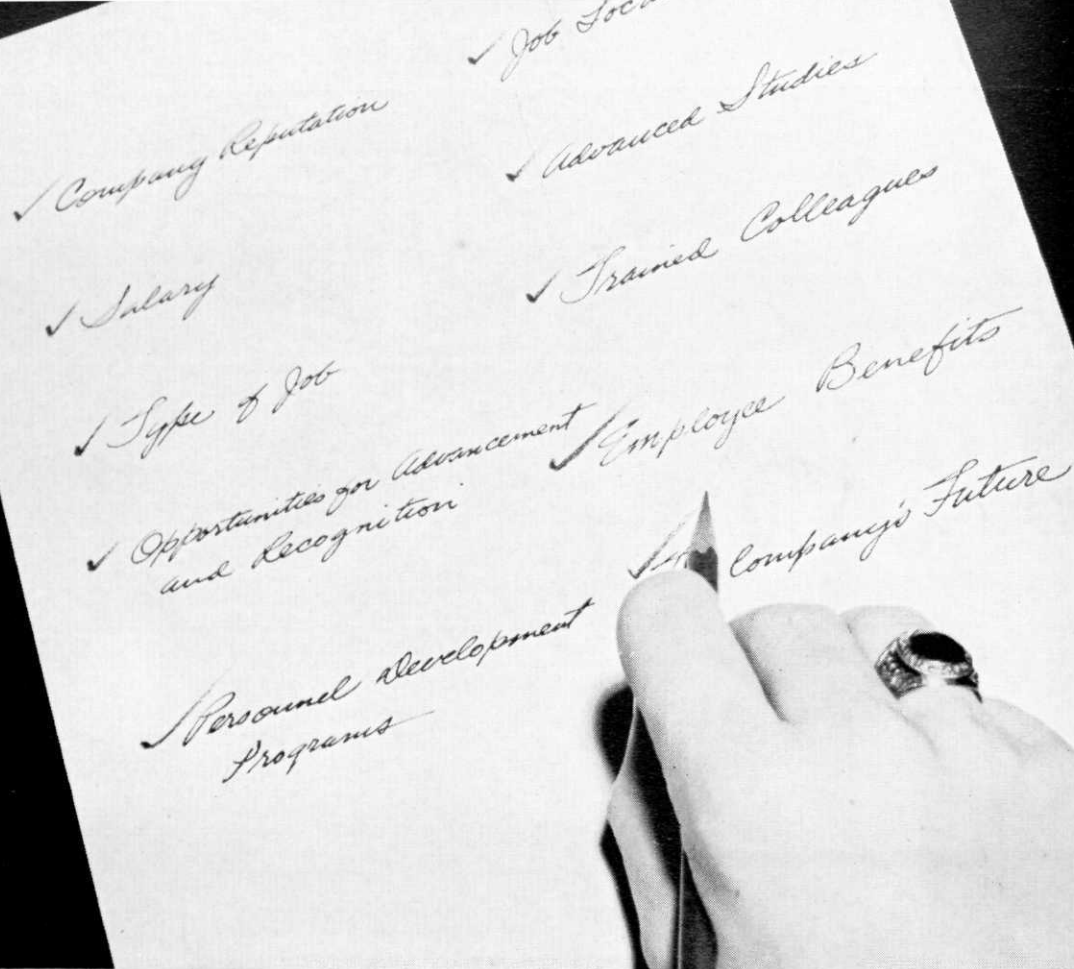 ✓ Company Reputation
✓ Salary
✓ Type of Job
✓ Opportunities for Advancement
and Recognition
✓ Personnel Development
Programs
✓ Job
✓ Advanced Studies
✓ Trained Colleagues
✓ Employee Benefits
✓ Company's Future